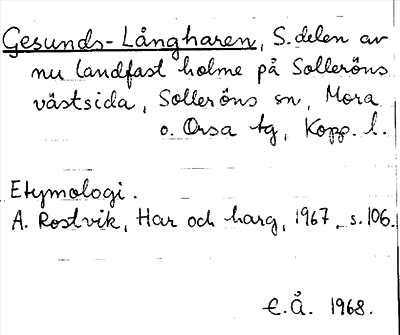 Gesunds-Långharen, S. delen av
nu landfast holme på Solleröns
västsida, Solleröns sn, Mora
o. Orsa tg, Kopp. l.
Etymologi.
A. Rostvik, Har och harg, 1967, s. 106.
E.Å. 1968.